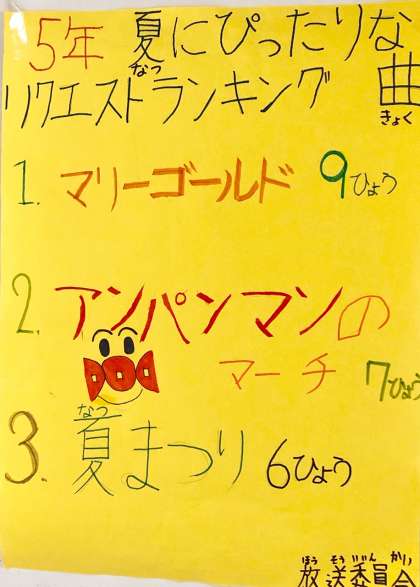 5年 夏にぴったりな曲
なつ きょく
リクエストランキング
1. マリーゴールド 9ひょう
2. アンパンマンの
マーチ 7ひょう
なつ
3. 夏まつり 6ひょう
ほう そう いいん かい
放送委員会